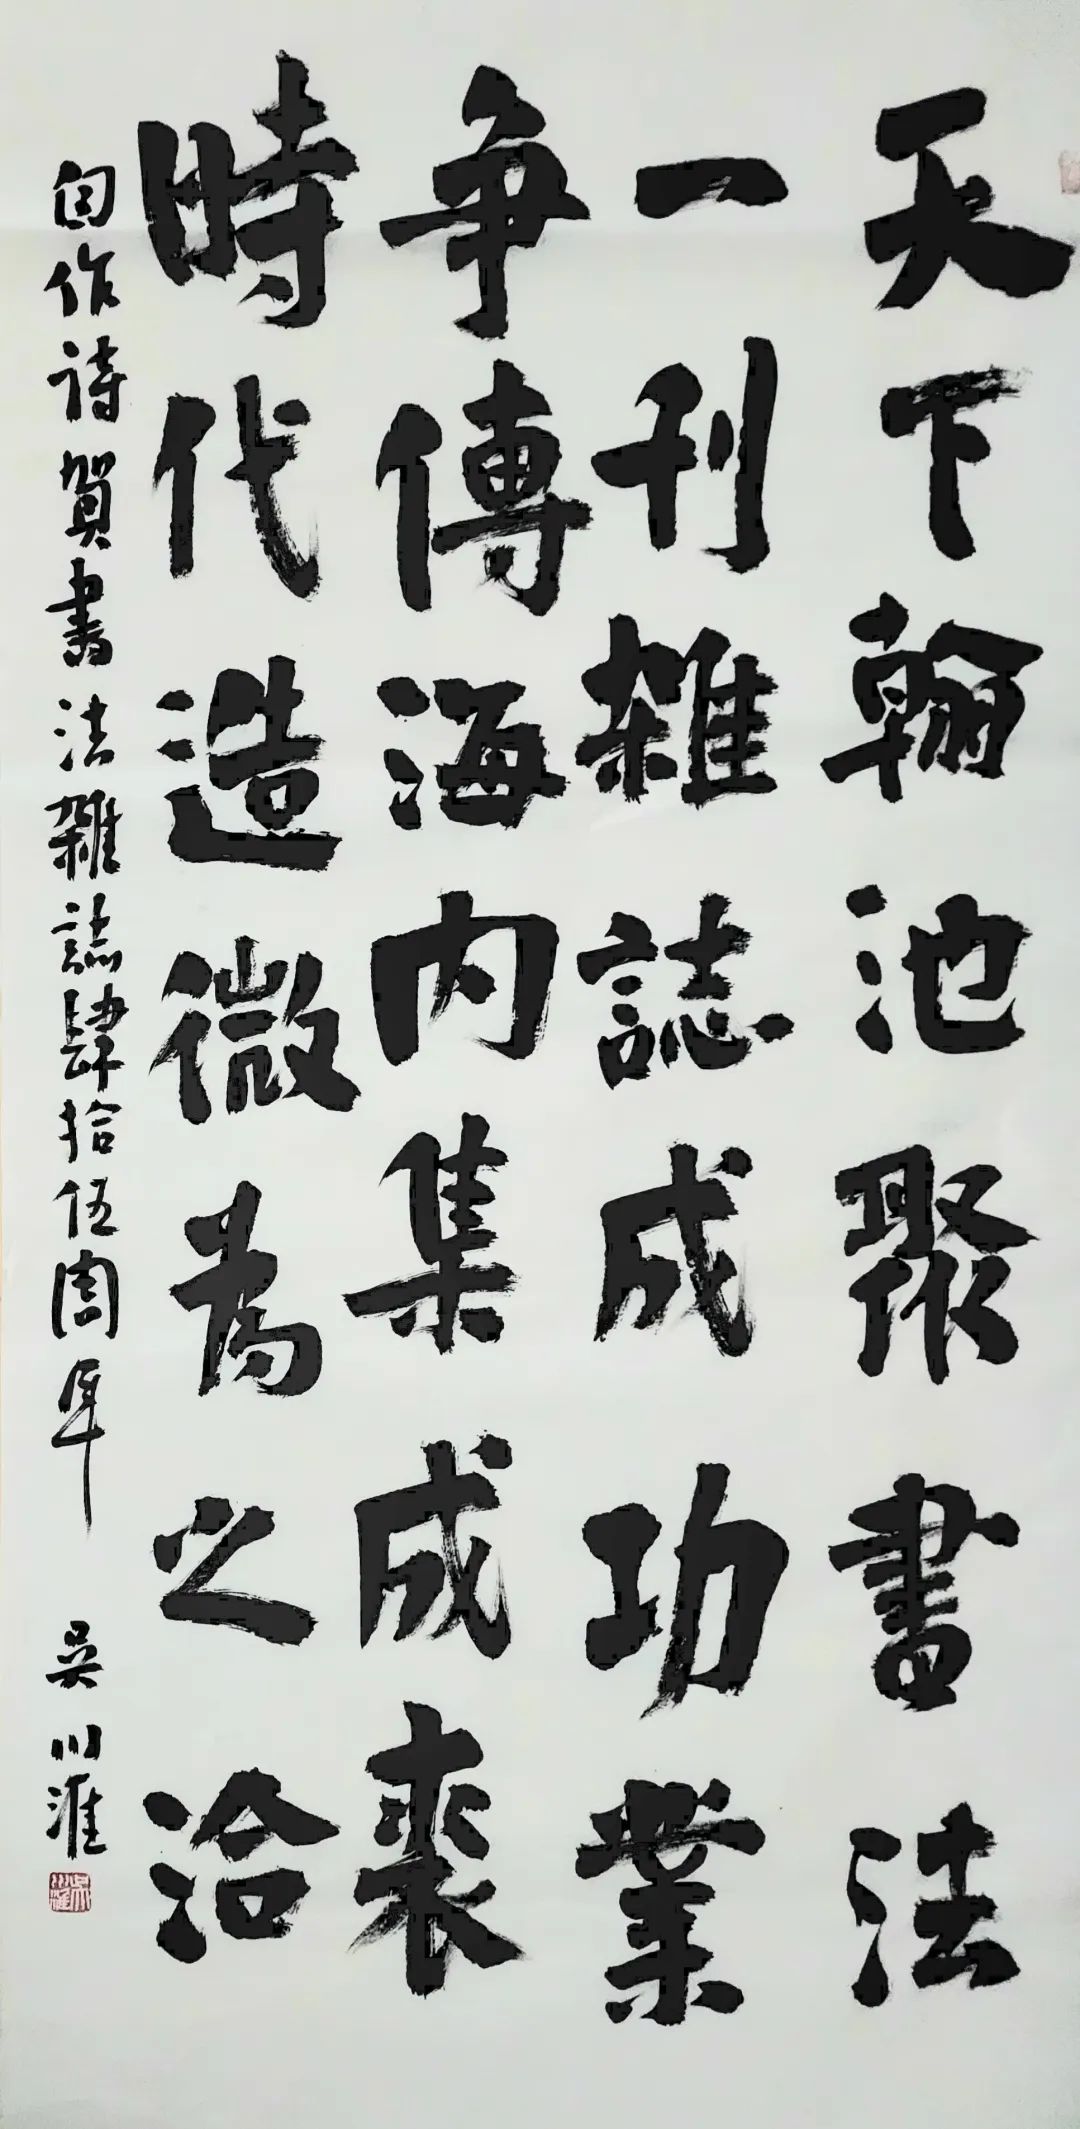 天下翰池聚書法
一刊雜誌成功業
争傳海内集成裘
時代造微為之洽
自作诗賀書法雜誌肆拾伍周年 吴川淮